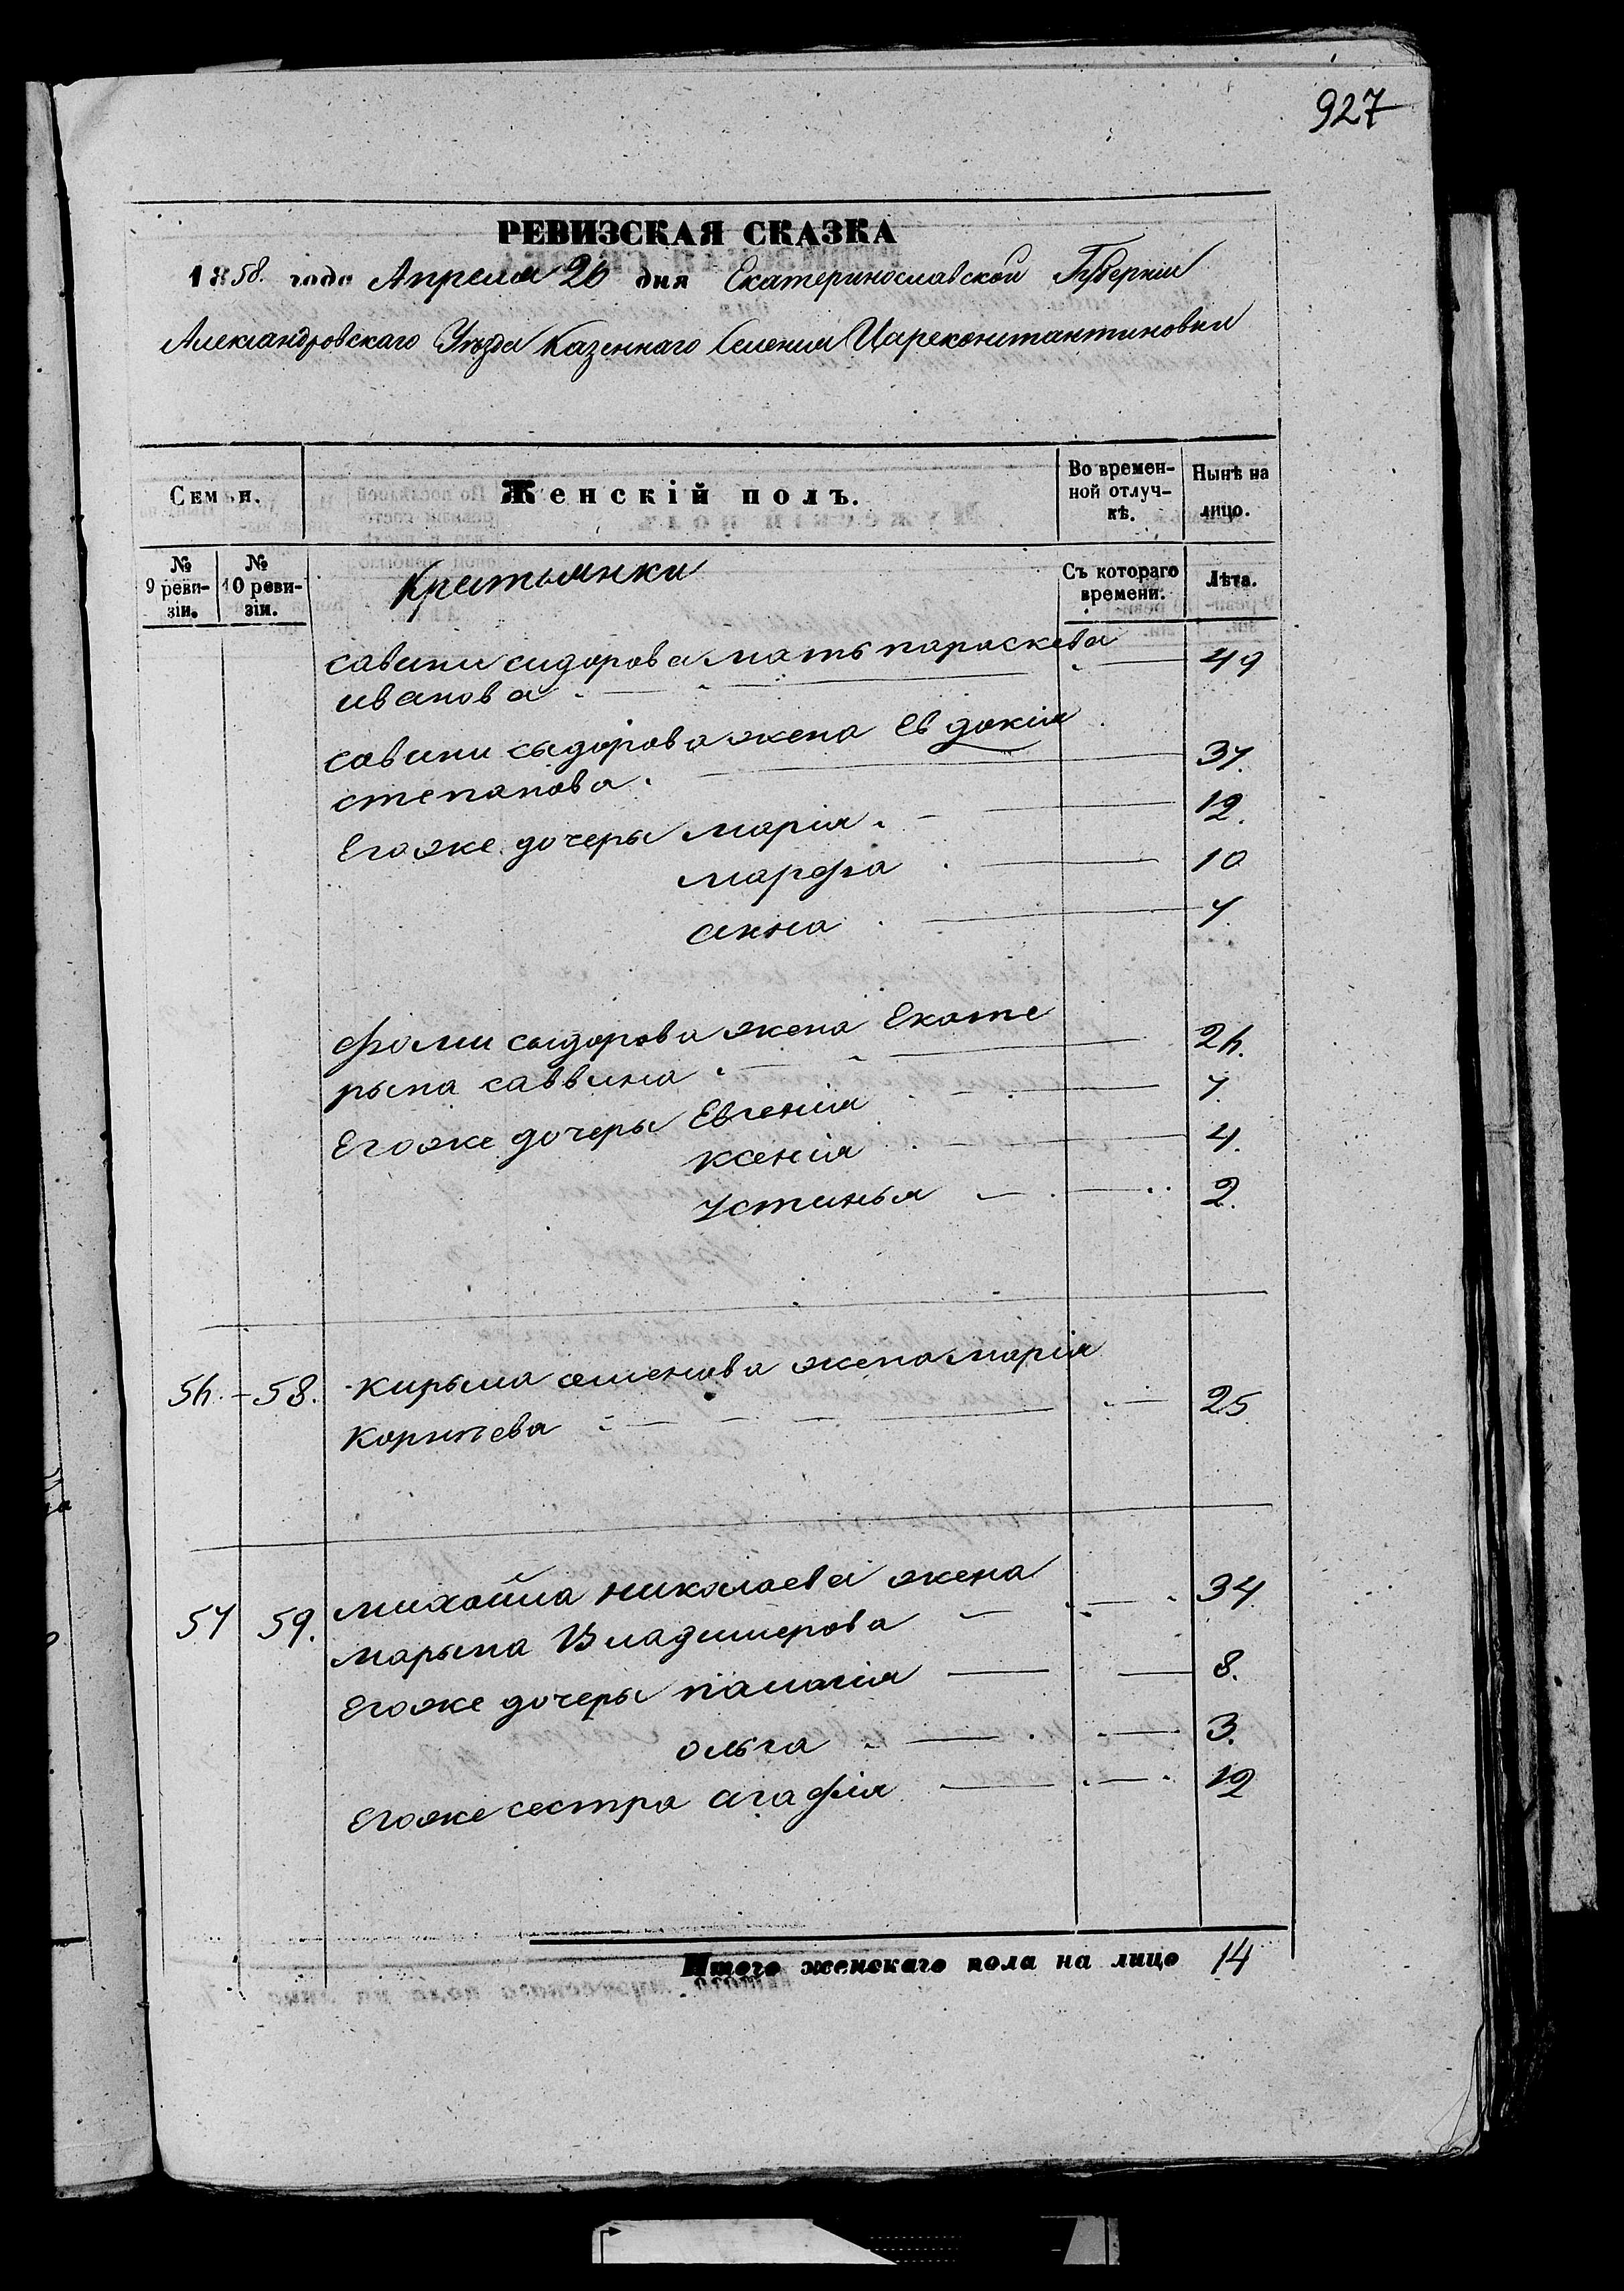 927
РЕВИЗСКАЯ СКАЗКА
1858. года Апреля 26 дня Екатеринославской Губерніи
Александровскаго Уезда Казеннаго Селения Цареконстантиновки
Семьи.
Женскій полъ.
Во времен-
ной отлуч-
кѣ.
Нынѣ на
лицо.
№
9 реви-
зіи.
№
10 реви-
зіи.
Крестьянки
Съ котораго
времени.
Лѣта.
савины сидорова мать параскева 49
иванова
савины сыдорова жена Евдокия
степанова. 37.
Егоже дочеры марія. 12.
марфа 10
анна 7.
фомы сыдорова жена Екате
рына саввина 26.
Егоже дочеры Евгенія 7
ксенія 4.
Устинья 2.
56. 58. кирыла семенова жена марія
корнеева 25
57 59. михайла николаева жена 34
марына Владимерова
Егоже дочеры палагія 8.
ольга 3.
Егоже сестра агафія 12
Итого женскаго пола на лицо 14